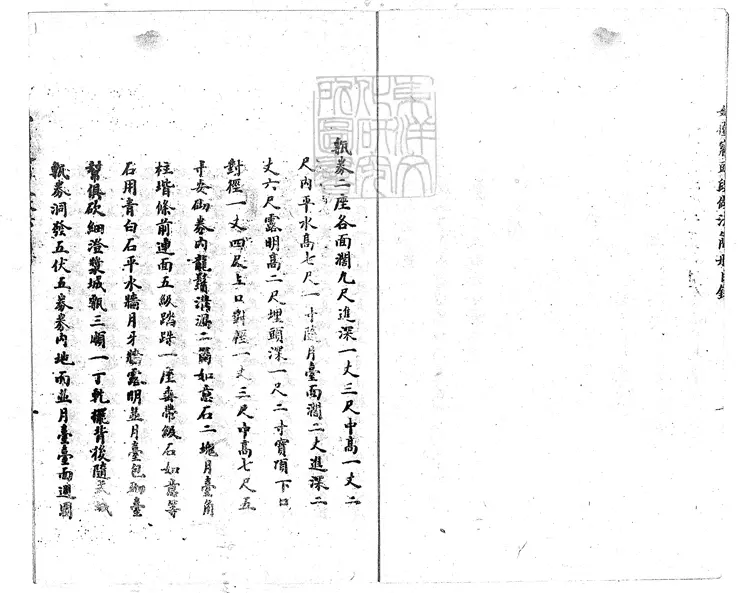 甎券二座各面濶九尺進深一丈三尺中高一丈二
尺内平水高七尺一寸隨月臺面濶二丈進深二
丈六尺露明高二尺埋頭深一尺二寸寶頂下口
對徑一丈四尺上口對徑一丈三尺中高七尺五
寸安砌券内龍鬚溝漏二箇如意石二塊月臺角
柱堦條前連面五級踏跺一座垂帶級石如意等
石用青白石平水牆月牙牆露明並月臺包砌臺
幫俱砍細澄漿城甎三順一丁乾擺背後隨城
甎券洞發五伏五券券内地面並月臺臺面週圍
東洋文化研究所圖